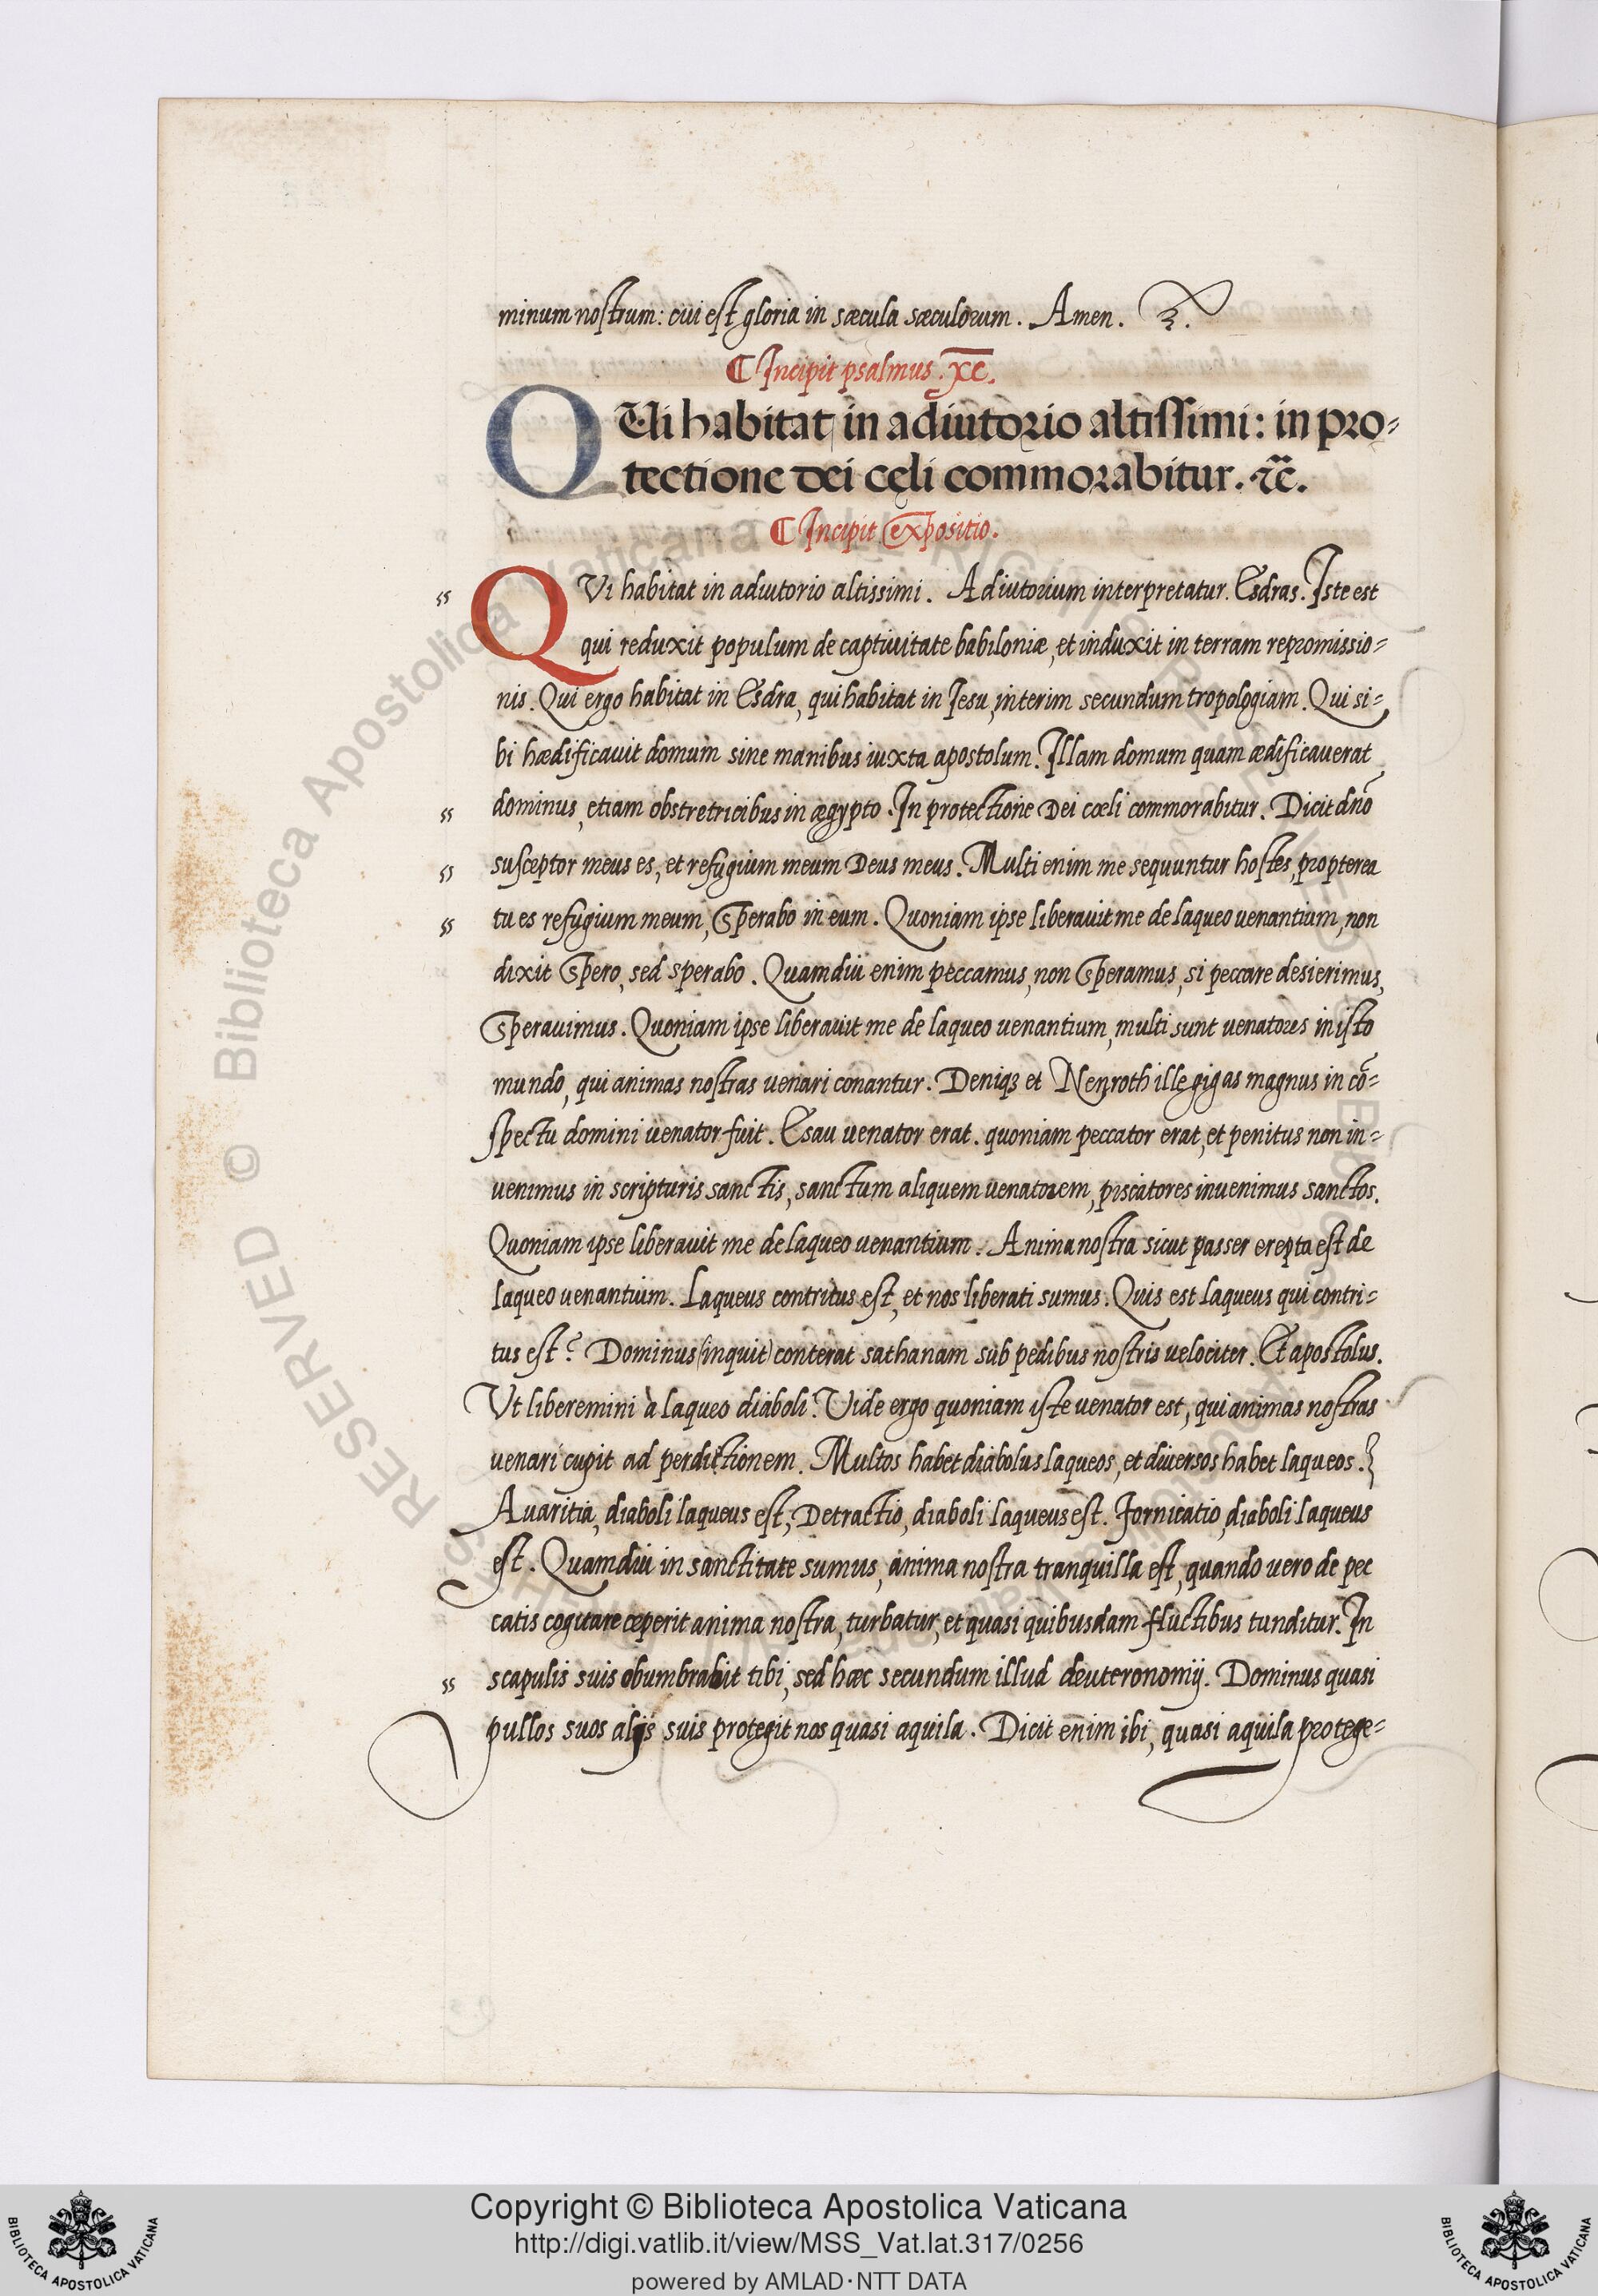 minum nostrum: cui est gloria in sæcula sæculorum. Amen.
¶ Incipit psalmus. xc.
QUi habitat in adiutorio altissimi: in pro=
tectione dei cęli commorabitur. &c.
¶ Incipit expositio.
QVi habitat in adiutorio altissimi. Adiutorium interpretatur. Esdras. Iste est
qui reduxit populum de captiuitate babiloniæ, et induxit in terram repromissio=
nis. Qui ergo habitat in Esdra, qui habitat in Iesu, interim secundum tropologiam. Qui si=
bi hædificauit domum sine manibus iuxta apostolum. Illam domum quam ædificauerat
dominus, etiam obstretricibus in ægypto. In protectione Dei cœli commorabitur. Dicit dnō
susceptor meus es, et refugium meum Deus meus. Multi enim me sequuntur hostes, propterea
tu es refugium meum, Sperabo in eum. Quoniam ipse liberauit me de laqueo uenantium, non
dixit Spero, sed sperabo. Quamdiu enim peccamus, non Speramus, si peccare desierimus,
Sperauimus. Quoniam ipse liberauit me de laqueo uenantium, multi sunt uenatores in isto
mundo, qui animas nostras uenari conantur. Deniqꝫ et Nenroth ille gigas magnus in cō=
spectu domini uenator fuit. Esau uenator erat. quoniam peccator erat, et penitus non in=
uenimus in scripturis sanctis, sanctum aliquem uenatorem, piscatores inuenimus sanctos.
Quoniam ipse liberauit me de laqueo uenantium. Anima nostra sicut passer erepta est de
laqueo uenantium. Laqueus contritus est, et nos liberati sumus. Quis est laqueus qui contri=
tus est? Dominus (inquit) conterat sathanam sub pedibus nostris uelociter. Et apostolus.
Vt liberemini à laqueo diaboli. Uide ergo quoniam iste uenator est, qui animas nostras
uenari cupit ad perdictionem. Multos habet diabolus laqueos, et diuersos habet laqueos.
Auaritia, diaboli laqueus est, Detractio, diaboli laqueus est. Fornicatio, diaboli laqueus
est. Quamdiu in sanctitate sumus, anima nostra tranquilla est, quando uero de pec
catis cogitare cęperit anima nostra, turbatur, et quasi quibusdam fluctibus tunditur. In
scapulis suis obumbrabit tibi, sed hæc secundum illud deuteronomij. Dominus quasi
pullos suos alijs suis protegit nos quasi aquila. Dicit enim ibi, quasi aquila protege=
Copyright © Biblioteca Apostolica Vaticana
http://digi.vatlib.it/view/MSS_Vat.lat.317/0256
powered by AMLAD·NTT DATA
BIBLIOTECA APOSTOLICA VATICANA
BIBLIOTECA APOSTOLICA VATICANA